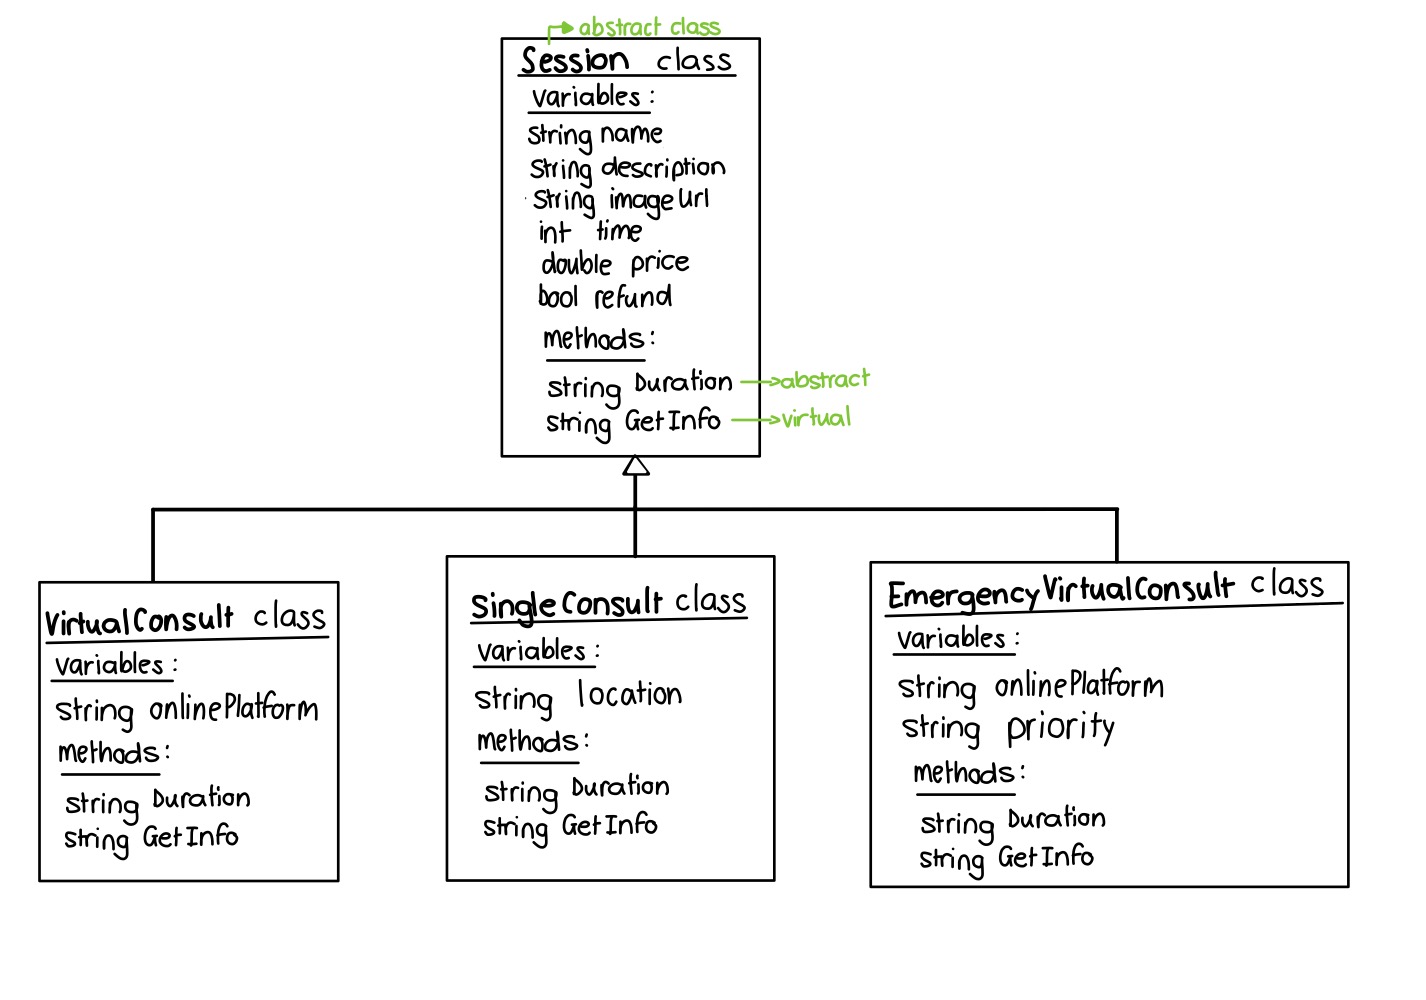 abstract class
Session class
variables:
string name
String description
String imageUrl
int time
double price
bool refund
methods:
string Duration → abstract
string GetInfo → virtual
VirtualConsult class
variables:
string onlinePlatform
methods:
string Duration
string GetInfo
SingleConsult class
variables:
string location
methods:
string Duration
string GetInfo
EmergencyVirtualConsult class
variables:
string onlinePlatform
string priority
methods:
string Duration
string GetInfo